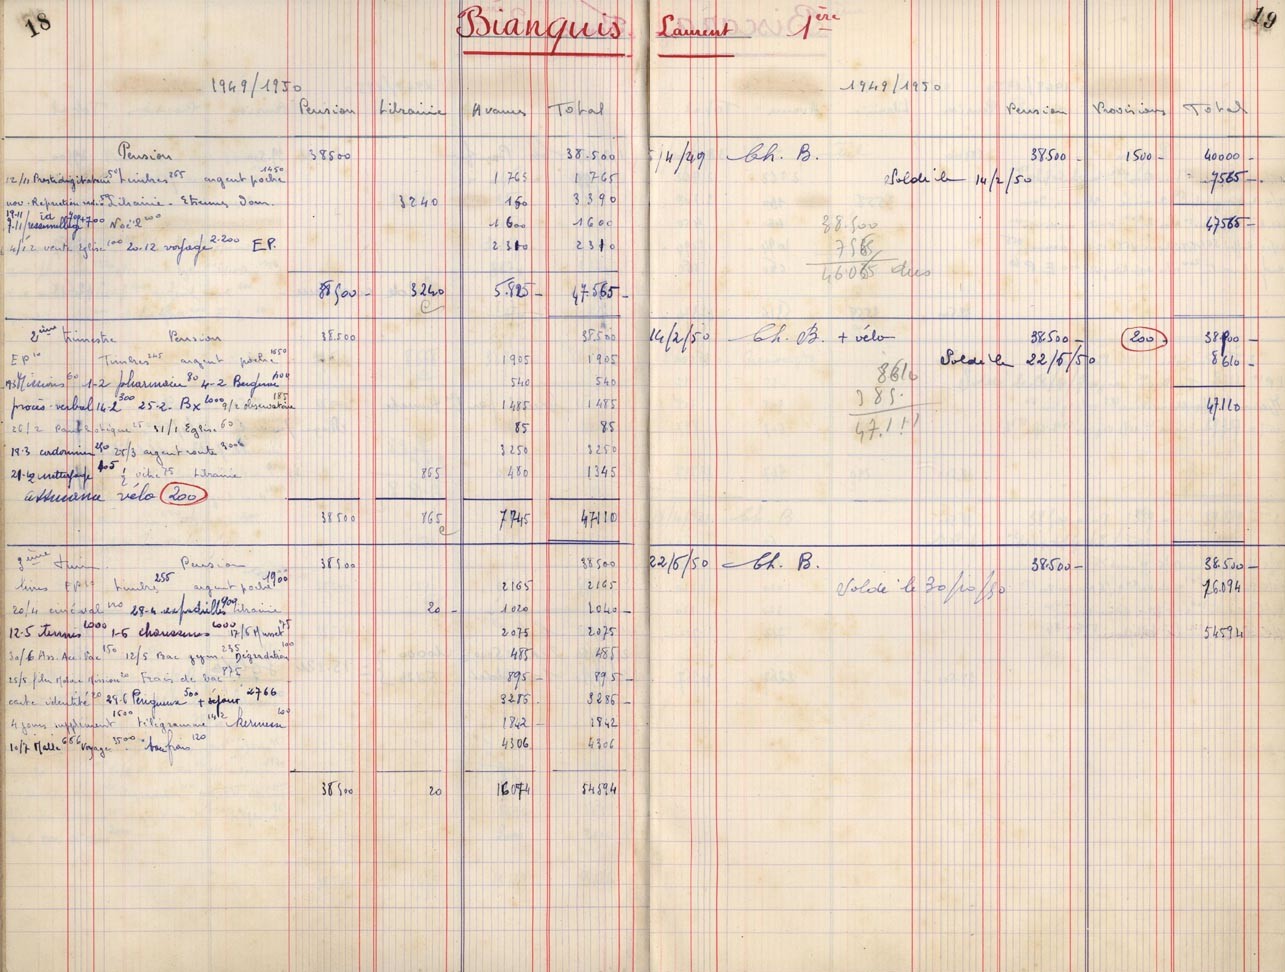 18
Bianquis Laurent 1ère
19
1949/1950
Pension Librairie Avances Total
Pension 38500 38.500
12/11 Prestidigitateur 50 timbres 265 argent poche 1450 1765 1765
nov. Librairie - Etrennes Dom. 3240 150 3390
Noël 1600 1600
vente Eglise 100 20.12 voyage 2.200 E.P. 2310 2310
38500 - 3240 5.825 - 47565 -
2ème trimestre Pension 38.500 38.500
EP 10 Timbres 245 argent poche 1650 1905 1905
Missions 60 1-2 pharmacie 80 4-2 Bergerac 400 540 540
procès-verbal 14-2 300 25-2 Bx 1000 9/2 observatoire 185 1485 1485
26/2 25 31/1 Eglise 60 85 85
18-3 cordonnier 250 25/3 argent route 3000 3250 3250
nettoyage 405 ½ vitre 75 Librairie 865 480 1345
assurance vélo 200
38500 865 7745 47110
3ème trim Pension 38500 38500
EP timbres 255 argent poche 1900 2165 2165
20/4 cinéval 28-4 espadrilles 900 librairie 20 - 1020 1040 -
12-5 tennis 1000 1-6 chaussures 1000 17/6 Musset 75 2075 2075
30/6 Ass. Au Bac 150 12/5 Bac gym. 235 Dégradation 100 485 485
25/5 Mission 20 Frais de bac 875 895 - 895 -
carte identité 20 29-6 Périgueux 500 + séjour 2766 3286 - 3286 -
4 jours supplément 1600 télégramme 142 kermesse 100 1842 - 1842
10/7 Malle 686 Voyage 3500 120 4306 4306
38500 20 16074 54594
1949/1950
Pension Provisions Total
/4/49 Ch. B. 38500 - 1500 - 40000 -
Solde le 14/2/50 7565 -
47565 -
38.500
7565
46065 dus
14/2/50 Ch. B. + vélo 38.500 - 200 -
Solde le 22/5/50 8610 -
47110
8610
385
47.111
22/5/50 Ch. B. 38.500 - 38.500 -
Solde le 30/10/50 16094
54594